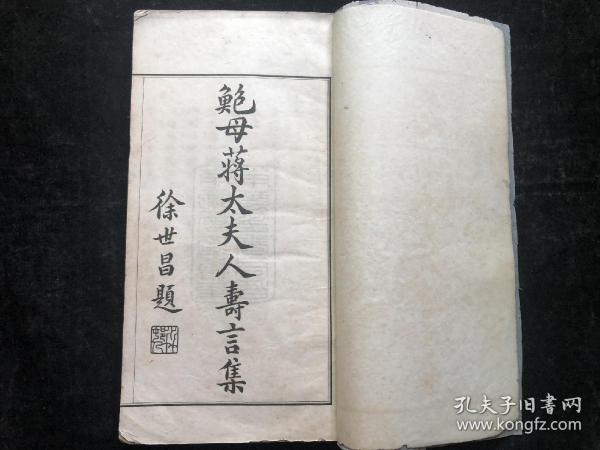 鮑母蔣太夫人壽言集
徐世昌題
孔夫子旧书网
www.kongfz.com